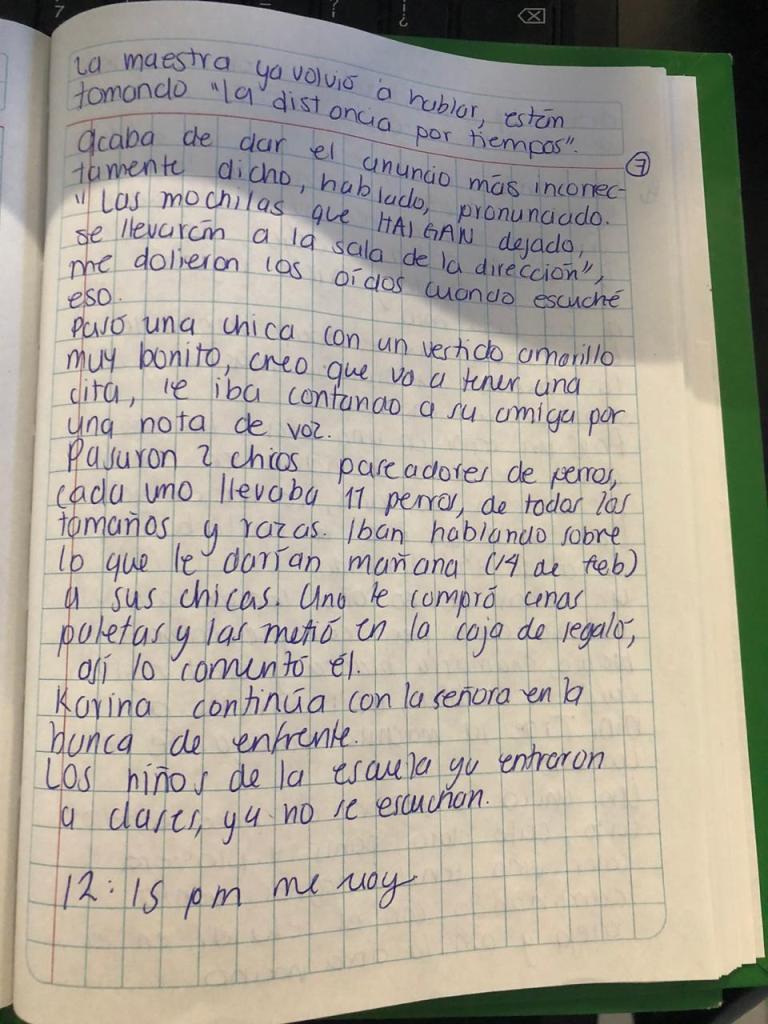 La maestra ya volvió a hablar, están
tomando "la distancia por tiempos".
7
acaba de dar el anuncio más incorrec-
tamente dicho, hablado, pronunciado.
"Las mochilas que HAIGAN dejado,
se llevarán a la sala de la dirección",
me dolieron los oídos cuando escuché
eso.
Pasó una chica con un vestido amarillo
muy bonito, creo que va a tener una
cita, le iba contando a su amiga por
una nota de voz.
Pasaron 2 chios paseadores de perros,
cada uno llevaba 11 perros, de todos los
tamaños y razas. Iban hablando sobre
lo que le darían mañana (14 de feb)
a sus chicas. Uno le compró unas
paletas y las metió en la caja de regalo,
así lo comentó él.
Karina continúa con la señora en la
banca de enfrente.
Los niños de la escuela ya entraron
a clases, ya no se escuchan.
12:15 pm me voy